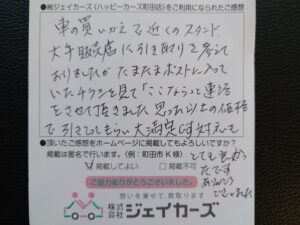 ●㈱ジェイカーズ(ハッピーカーズ町田店)をご利用になられたご感想
車の買いかえで近くのスタンド
大手販売店に引き取りを考えて
おりましたが たまたまポストに入って
いたチラシを見て「ここなら」って連絡
をさせて頂きました 思った以上の価格
で引きとってもらい大満足です 対応も
●頂いたご感想をホームページに掲載してもよろしいですか?
掲載は匿名で行います。(例:町田市K様)
とても良かっ
掲載してよい 掲載不可
たです
ご協力ありがとうございました。
ありがとう
ございました
想いを乗せて、買取ります
株式会社ジェイカーズ